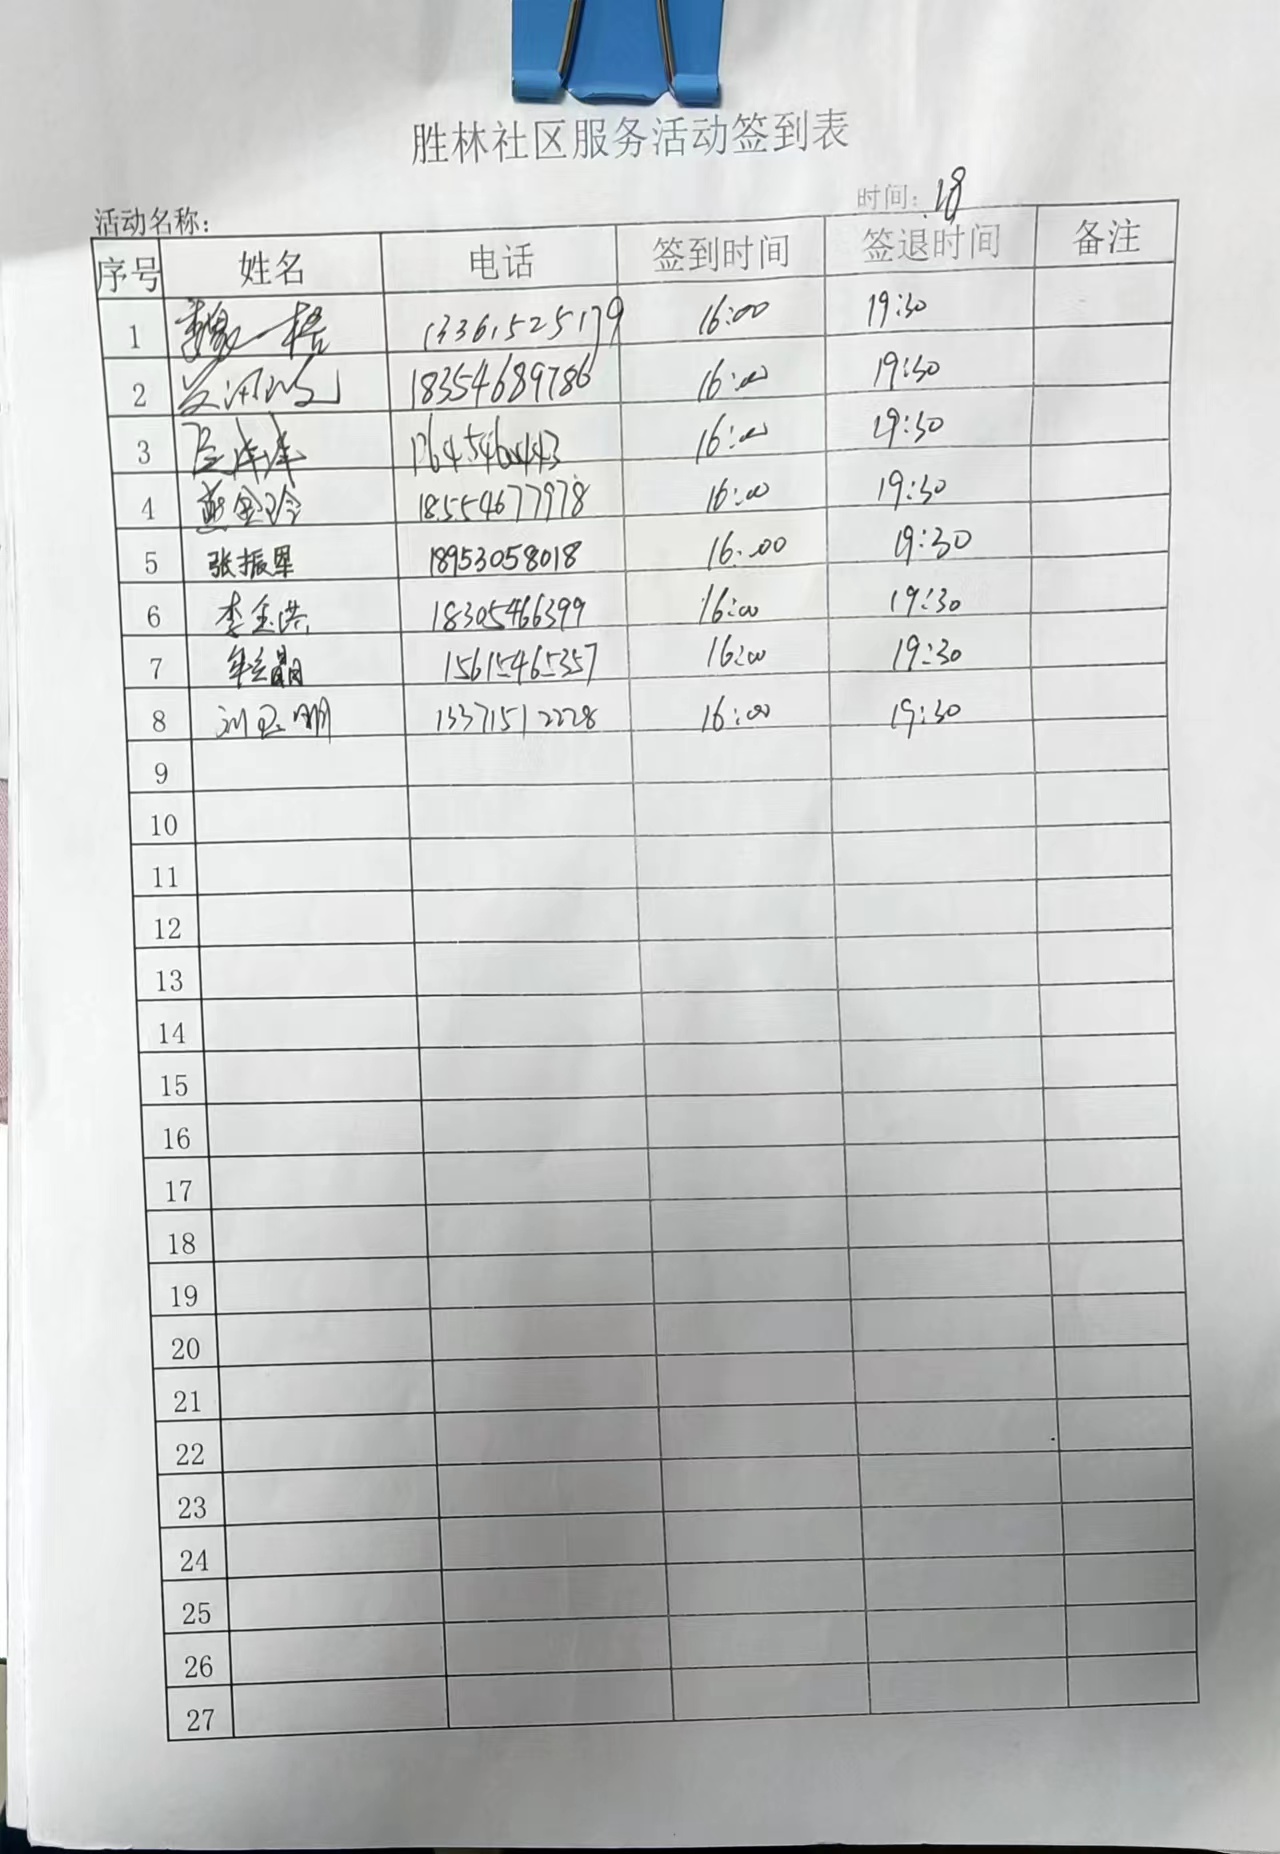 胜林社区服务活动签到表
时间: 18
活动名称:
序号 姓名 电话 签到时间 签退时间 备注
1 一 13361525179 16:00 19:30
2 18354689786 16:00 19:30
3 16:00 19:30
4 18554677978 16:00 19:30
5 张振军 18953058018 16:00 19:30
6 李玉洪 18305466399 16:00 19:30
7 15615465357 16:00 19:30
8 刘玉明 13371512228 16:00 19:30
9
10
11
12
13
14
15
16
17
18
19
20
21
22
23
24
25
26
27